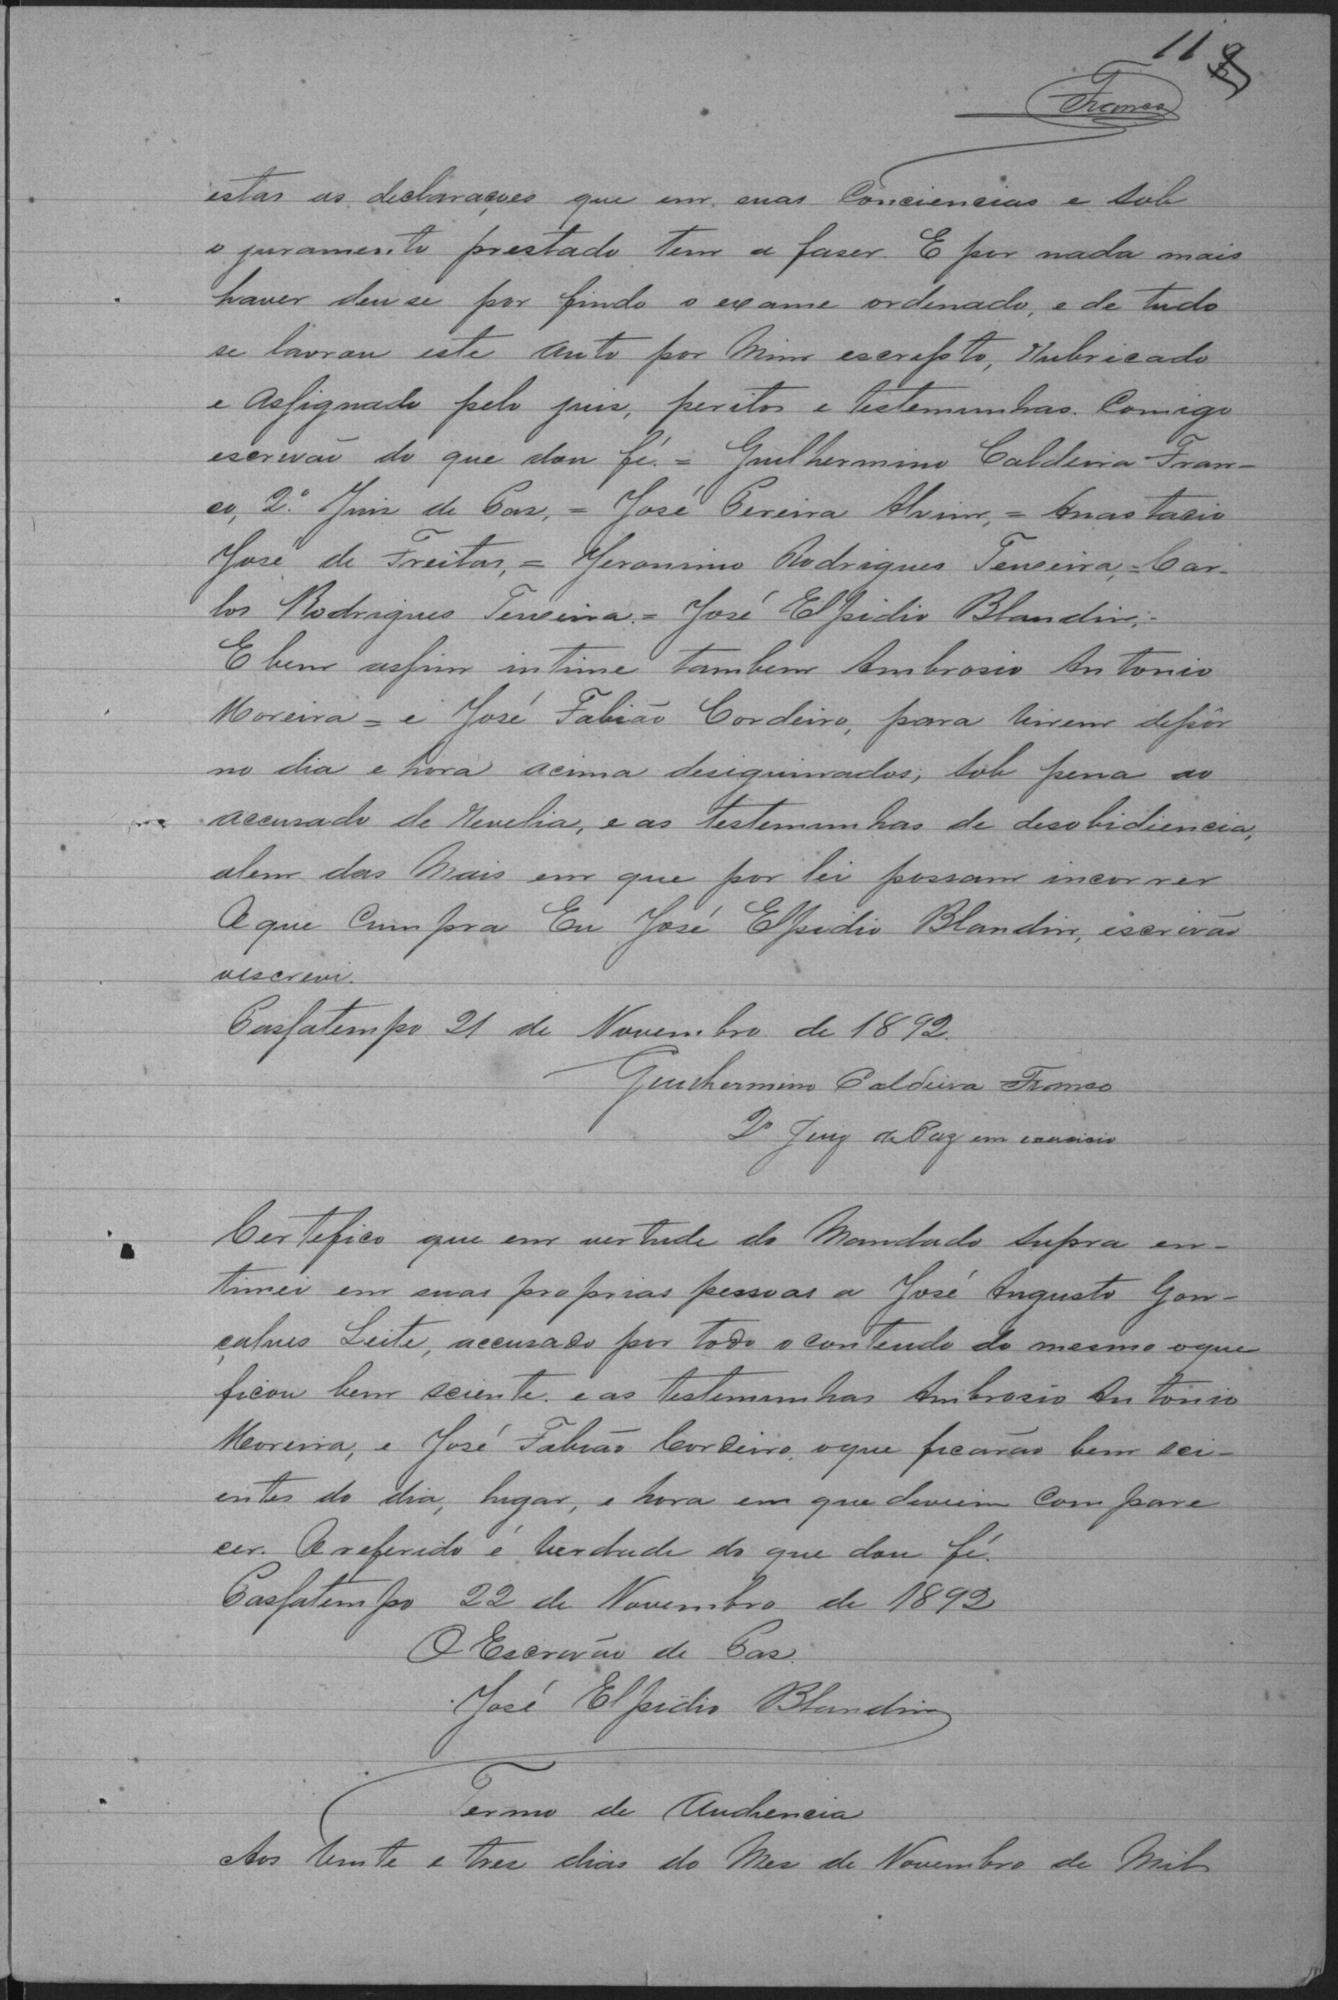 11
Franco
estas as declarações que em suas Conciencias e sob
o juramento prestado tem a faser. E por nada mais
haver deu se por findo o exame ordenado, e de tudo
se lavrou este auto por Mim escripto, Rubricado
e Assignado pelo juis, peritos e testemunhas. Comigo
escrivão do que dou fé. = Guilhermino Caldeira Fran-
co, 2º Juis de Pas, = José Pereira Alvim, = Anastacio
José de Freitas, = Jeronimo Rodrigues Teixeira, = Car-
los Rodrigues Teixeira. = José Elpidio Blandin;-
E bem assim intime tambem Ambrosio Antonio
Moreira = e José Fabião Cordeiro, para virem depôr
no dia e hora acima desiguinados, sob pena ao
accusado de Revelia, e as testemunhas de desobidiencia,
alem das Mais em que por lei possam incorrer
O que Cumpra Eu José Elpidio Blandin, escrivão
oescrevi.
Passatempo 21 de Novembro de 1892.
Guilhermino Caldeira Franco
2º Juiz de Paz em exercicio
Certefico que em vertude do Mandado supra en-
timei em suas proprias pessoas a José Augusto Gon-
çalves Leite, accusado por todo o conteudo do mesmo oque
ficou bem sciente. e as testemunhas Ambrosio Antonio
Moreira, e José Fabião Cordeiro, oque ficarão bem sci-
entes do dia, lugar, e hora em que deveim Compare
cer. O referido é verdade do que dou fé.
Passatempo 22 de Novembro de 1892
O Escrivão de Pas.
José Elpidio Blandin
Termo de Audiencia
Aos vinte e tres dias do Mes de Novembro de Mil